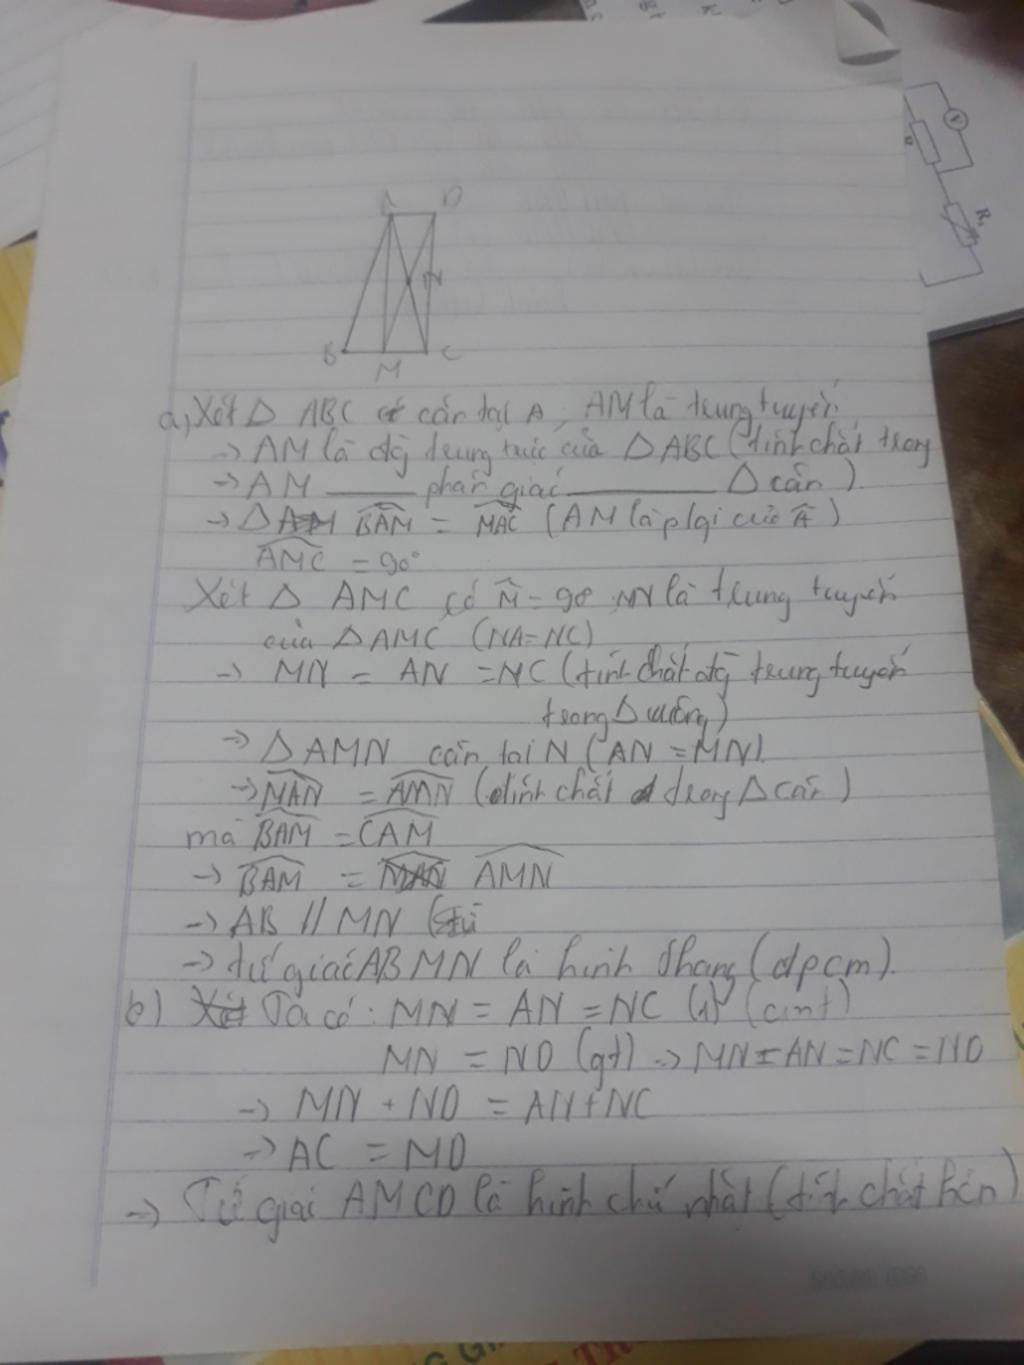 A D
N
B M C
a) Xét Δ ABC cân tại A, AM là trung tuyến
-> AM là đg trung trực của Δ ABC (tính chất trong
-> AM ____ phân giác ____ Δ cân)
-> Δ AM BAM = MAC (AM là p/gi của A)
AMC = 90°
Xét Δ AMC có M = 90 MN là trung tuyến
của Δ AMC (NA=NC)
-> MN = AN = NC (tính chất đg trung tuyến
trong Δ vuông)
-> Δ AMN cân tại N (AN = MN)
-> MAN = AMN (tính chất trong Δ cân)
mà BAM = CAM
-> BAM = MAN AMN
-> AB // MN
-> tứ giác ABMN là hình thang (đpcm).
b) Xét Ta có: MN = AN = NC (1) (cmt)
MN = ND (gt) -> MN = AN = NC = ND
-> MN + ND = AN + NC
-> AC = MD
-> Tứ giác AMCD là hình chữ nhật (tính chất hcn)
R
V